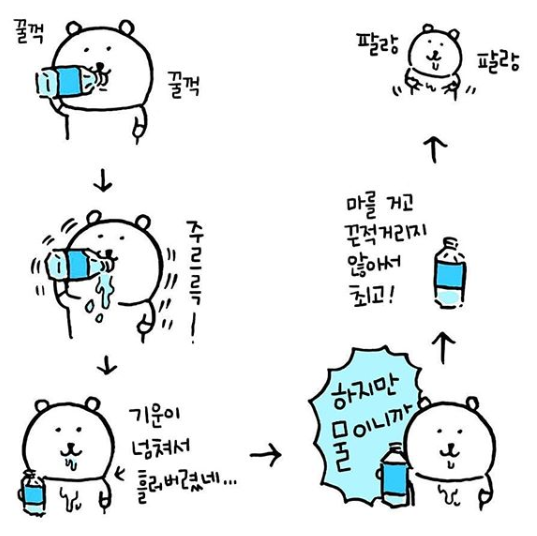 꿀꺽
꿀꺽
주르르륵!
기운이
넘쳐서
흘러버렸네...
하지만
물이니까
마를 거고
끈적거리지
않아서
최고!
팔랑
팔랑